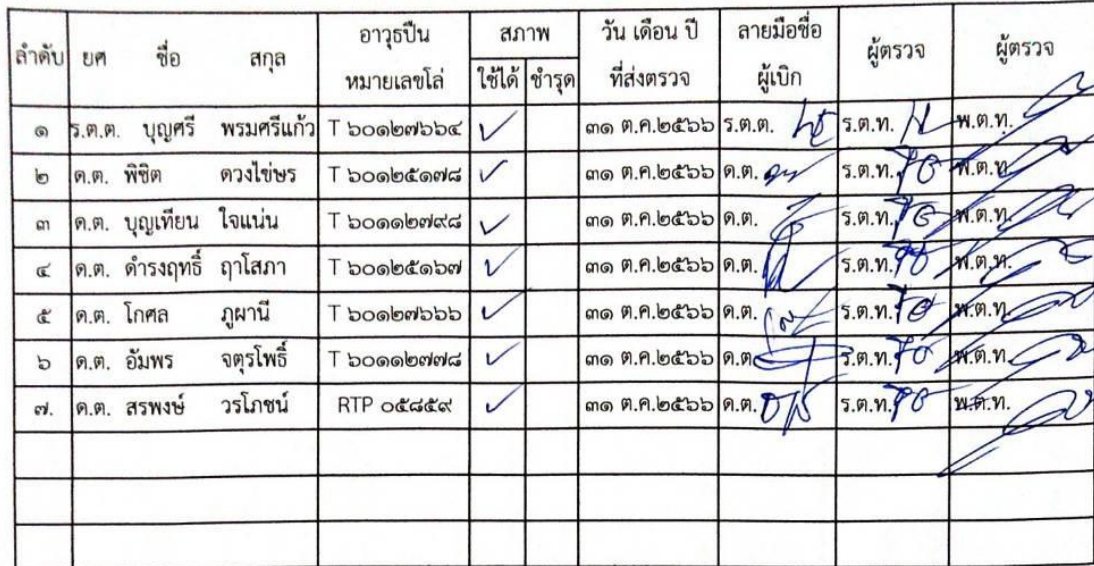 ลำดับ ยศ ชื่อ สกุล อาวุธปืน หมายเลขโล่ สภาพ ใช้ได้ ชำรุด วัน เดือน ปี ที่ส่งตรวจ ลายมือชื่อ ผู้เบิก ผู้ตรวจ ผู้ตรวจ
๑ ร.ต.ต. บุญศรี พรมศรีแก้ว T ๖๐๑๒๗๖๖๔ ✓ ๓๑ ต.ค.๒๕๖๖ ร.ต.ต. ร.ต.ท. พ.ต.ท.
๒ ด.ต. พิชิต ดวงไข่ษร T ๖๐๑๒๕๑๗๘ ✓ ๓๑ ต.ค.๒๕๖๖ ด.ต. ร.ต.ท. พ.ต.ท.
๓ ด.ต. บุญเทียน ใจแน่น T ๖๐๑๑๒๗๙๘ ✓ ๓๑ ต.ค.๒๕๖๖ ด.ต. ร.ต.ท. พ.ต.ท.
๔ ด.ต. ดำรงฤทธิ์ ฤาโสภา T ๖๐๑๒๕๑๖๗ ✓ ๓๑ ต.ค.๒๕๖๖ ด.ต. ร.ต.ท. พ.ต.ท.
๕ ด.ต. โกศล ภูผานี T ๖๐๑๒๗๖๖๖ ✓ ๓๑ ต.ค.๒๕๖๖ ด.ต. ร.ต.ท. พ.ต.ท.
๖ ด.ต. อัมพร จตุรโพธิ์ T ๖๐๑๑๒๗๗๘ ✓ ๓๑ ต.ค.๒๕๖๖ ด.ต. ร.ต.ท. พ.ต.ท.
๗. ด.ต. สรพงษ์ วรโภชน์ RTP ๐๕๘๕๙ ✓ ๓๑ ต.ค.๒๕๖๖ ด.ต. ร.ต.ท. พ.ต.ท.